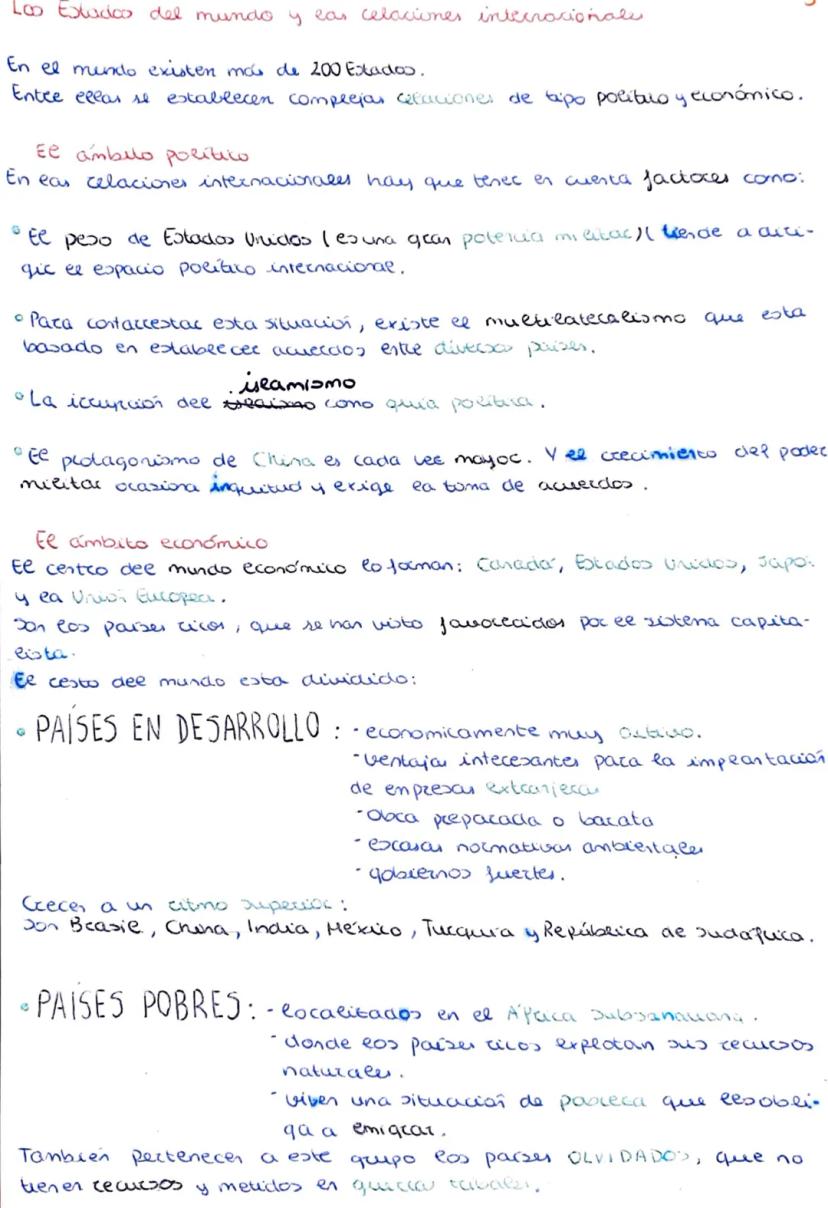 Los Estados del mundo y las relaciones internacionales
En el mundo existen más de 200 Estados.
Entre ellas se establecen complejas relaciones de tipo político y económico.
El ámbito político
En las relaciones internacionales hay que tener en cuenta factores como:
° El peso de Estados Unidos (es una gran potencia militar)( tiende a diri-
gir el espacio político internacional.
° Para contarrestar esta situación, existe el multilateralismo que esta
basado en establecer acuerdos entre diversos países.
islamismo
° La irrupción del como guia política.
° El protagonismo de China es cada vez mayor. Y el crecimiento del poder
militar ocasiona inquitud y exige la toma de acuerdos.
El ámbito económico
El centro del mundo económico lo forman: Canadá, Estados Unidos, Japó
y la Unión Europea.
Son los países ricos, que se han visto favorecidos por el sistema capita-
lista.
El resto del mundo esta dividido:
• PAÍSES EN DESARROLLO : - economicamente muy activo.
- ventajas interesantes para la implantación
de empresas extranjeras
- obra preparada o barata
- escasas normativas ambientales
- gobiernos fuertes.
Crecen a un ritmo superior:
Son Brasil, China, India, México, Turquía y República de Sudáfrica.
• PAÍSES POBRES: - localizados en el África subsahariana.
- donde los países ricos explotan sus recursos
naturales.
- viven una situación de pobreza que les obli-
ga a emigrar.
También pertenecen a este grupo los países OLVIDADOS, que no
tienen recursos y metidos en guerras tribales.